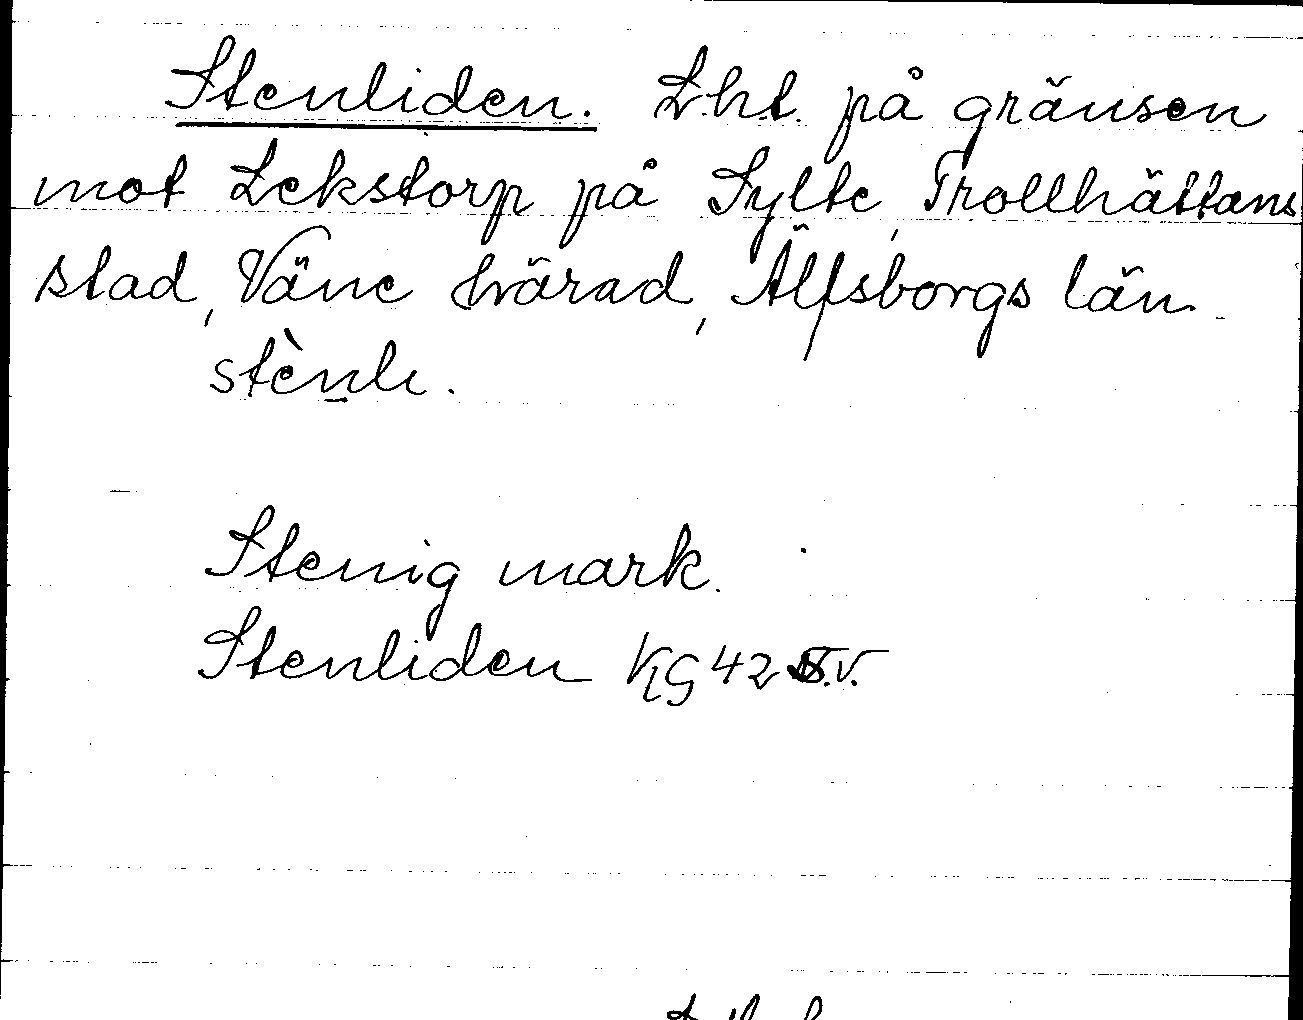 Stenliden. Lht. på gränsen
mot Lekstorp på Sylte, Trollhättans
stad, Väne härad, Älfsborgs län.
stènlı.
Stenig mark.
Stenliden KG 42 V.